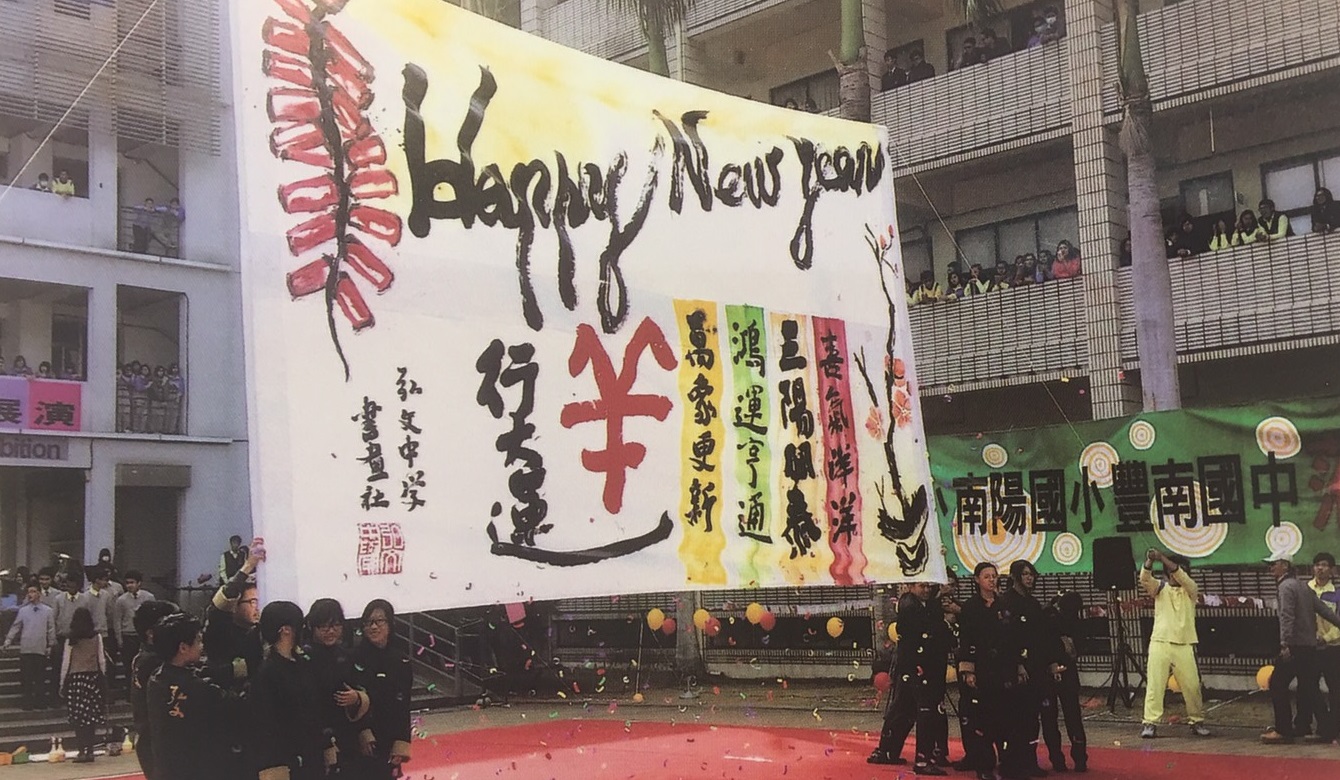 Happy New year
喜氣洋洋
三陽開泰
鴻運亨通
萬象更新
羊
行大運
弘文中学
書畫社
展演
bition
小南陽國小豐南國中